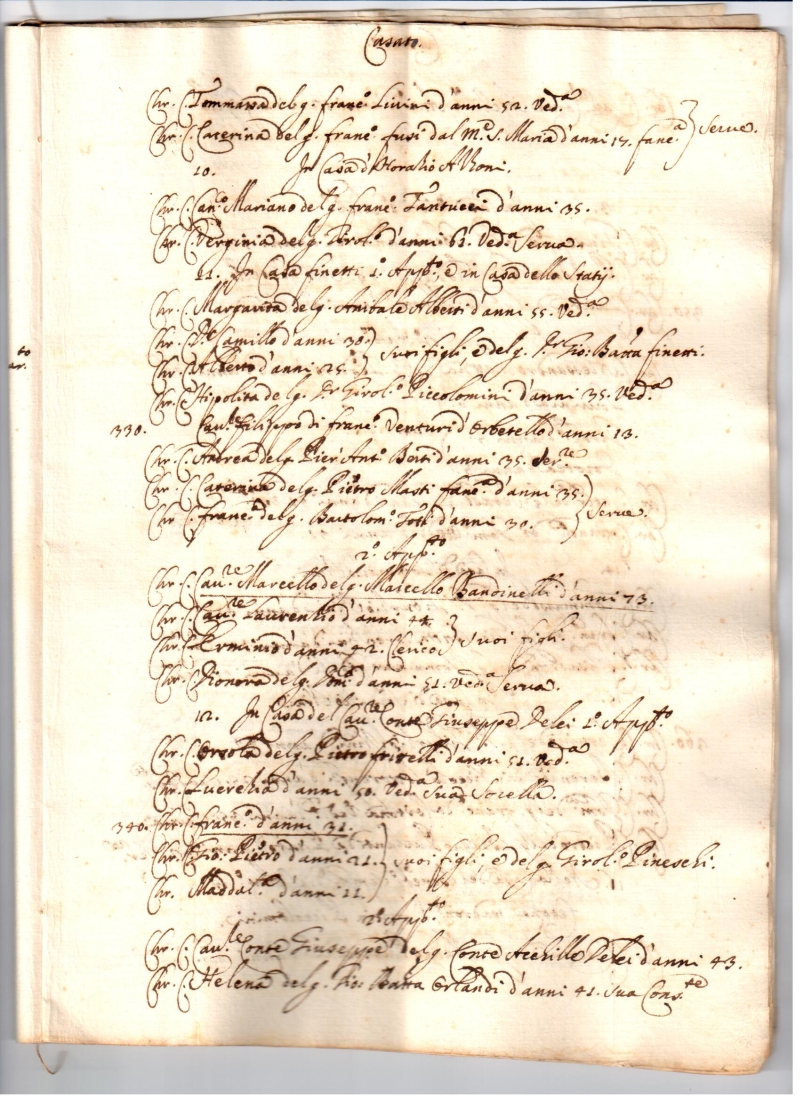 Casato.
Chr. C. Tommasa del q. Franc.o Livini d'anni 52. Ved.a
Chr. C. Caterina del q. Franc.o Fusi dal M.e S. Maria d'anni 17. fanc.a } Serve.
10. In Casa d'Horatio
Chr. C. Can.o Mariano del q. Franc.o Fantucci d'anni 35.
Chr. C. Verginia del q. Girol.o d'anni 61. Ved.a Serva.
11. In Casa Finetti 1.o App.to, e in Casa dello Statij.
Chr. C. Margarita del q. Anibale Alberti d'anni 55. Ved.a
to
ar.
Chr. C. Camillo d'anni 30.
Chr. C. Alberto d'anni 25. } suoi figli, e del q. Gio: Batta Finetti.
Chr. C. Hipolita del q. Girol.o Piccolomini d'anni 35. Ved.a
330. Cau.re Filippo di Franc.o Venturi d'Orbetello d'anni 13.
Chr. C. Andrea del q. Pier Ant.o Berti d'anni 35. Ser.re
Chr. C. Caterina del q. Pietro Masti fanc.a d'anni 35.
Chr. C. Franc.a del q. Bartolom.o Toti d'anni 30. } Serve.
2.o App.to
Chr. C. Cau.re Marcello del q. Marcello Bandinelli d'anni 73.
Chr. C. Cau.re Laurentio d'anni 44.
Chr. C. Erminio d'anni 42. Clerico } suoi figli.
Chr. C. Dionora del q. d'anni 51. Ved.a Serva.
12. In Casa del Cau.re Conte Giuseppe Delci 1.o App.to
Chr. C. Orsola del q. Pietro d'anni 51. Ved.a
Chr. C. Lucretia d'anni 50. Ved.a Sua Sorella.
340. Chr. C. Franc.o d'anni 31.
Chr. C. Gio: Pietro d'anni 21. } suoi figli, e del q. Girol.o Pineschi.
Chr. Maddal.a d'anni 11.
2.o App.to
Chr. C. Cau.re Conte Giuseppe del q. Conte Achille Delci d'anni 43.
Chr. C. Helena del q. Gio: Batta Orlandi d'anni 41. sua Cons.te